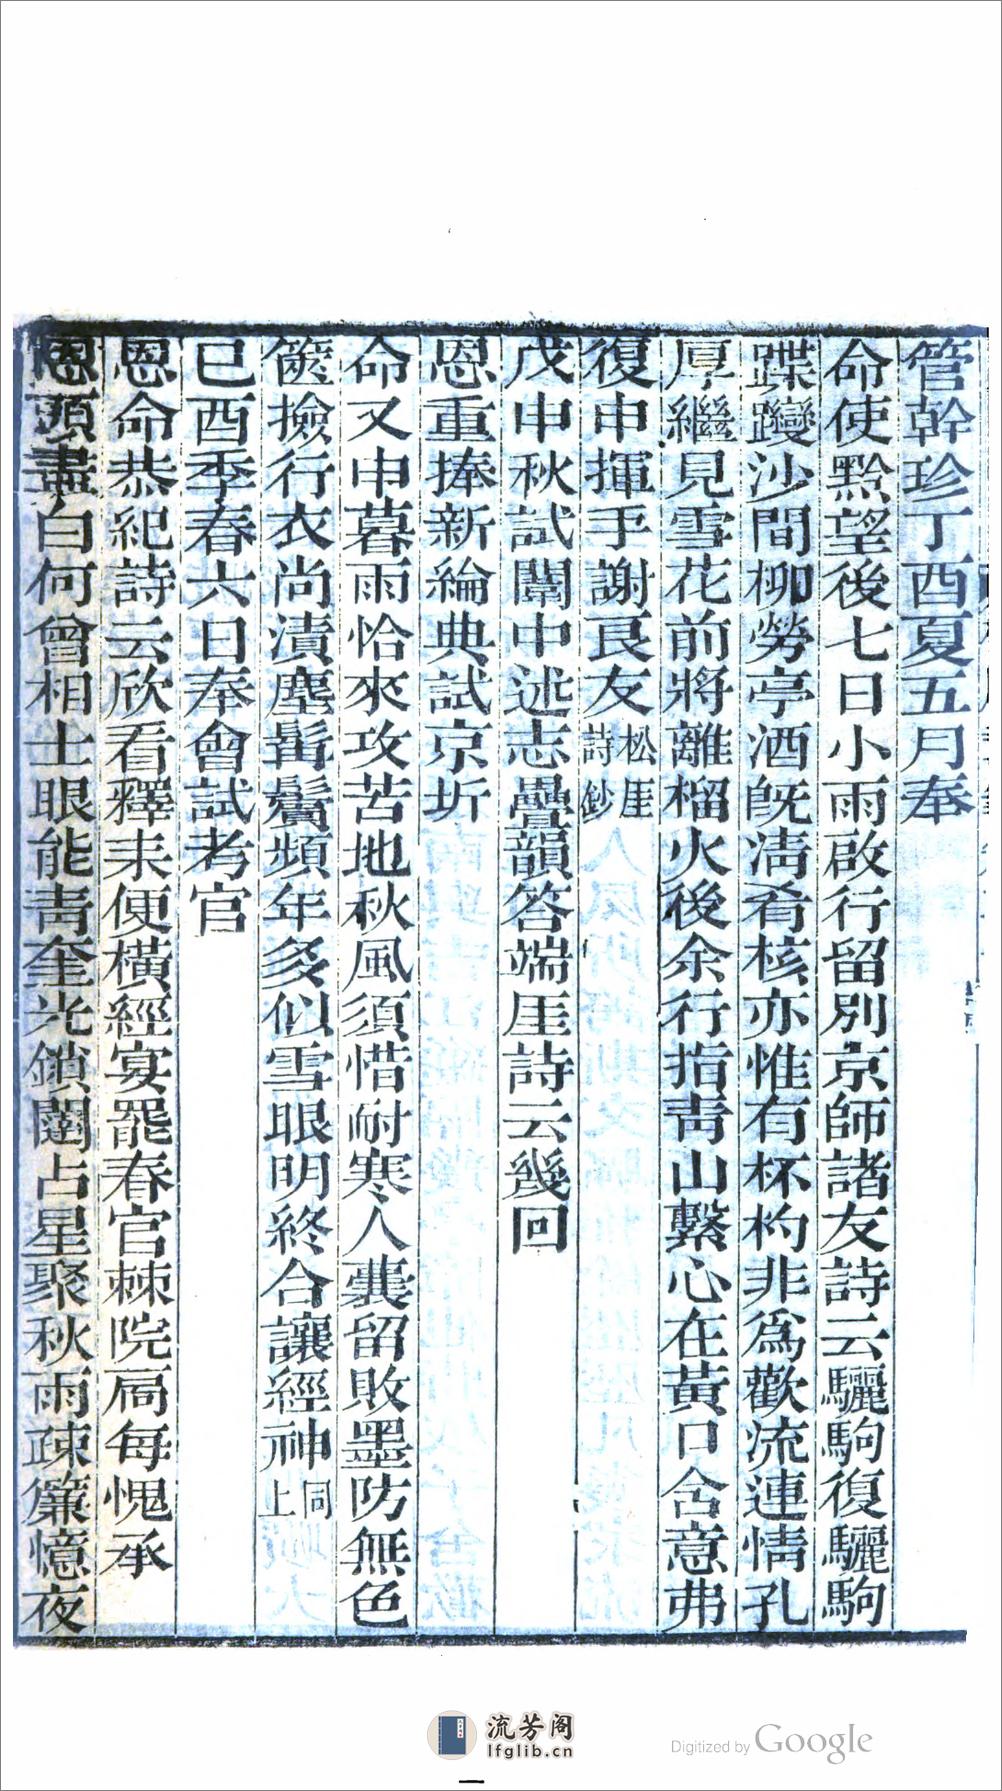 管幹珍丁酉夏五月奉
命使黔望後七日小雨啟行留別京師諸友詩云驪駒復驪駒
蹀躞沙間柳勞亭酒旣淸肴核亦惟有杯杓非爲歡流連情孔
厚繼見雪花前將離榴火後余行指靑山繫心在黃口含意弗
復申揮手謝良友松厓詩鈔
戊申秋試闈中述志疊韻答端厓詩云幾回
恩重捧新綸典試京圻
命又申暮雨恰來攻苦地秋風須惜耐寒人囊留敗墨防無色
篋撿行衣尚漬塵髩鬢頻年多似雪眼明終合讓經神同上
己酉季春六日奉會試考官
恩命恭紀詩云欣看釋耒便橫經宴罷春官棘院扃每愧承
恩頭盡白何曾相士眼能靑奎光鎖闥占星聚秋雨疎簾憶夜
流芳阁
lfglib.cn
Digitized by Google